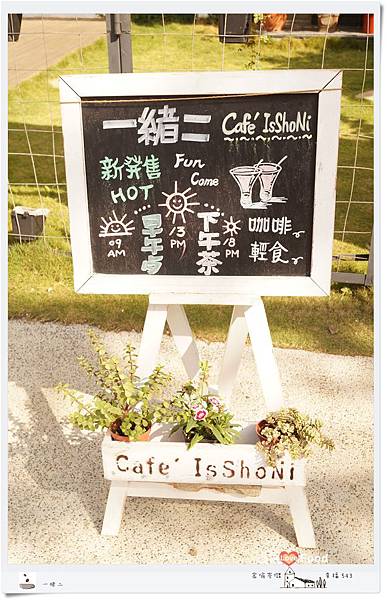 一緒二 Café IsShoNi
新発售 Fun
HOT Come
早午与 下午茶 咖啡
09 13 18 輕食
AM PM PM
Cafe´ IsShoNi
一緒二
幸福543